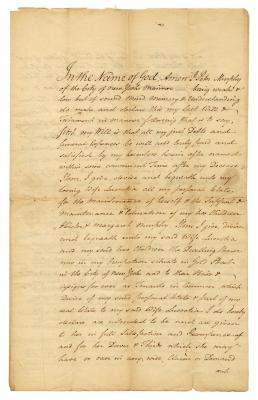 In the Name of God, Amen I John Murphy
of the City of New York Mariner being weak &
low but of sound Mind Memory & Understanding
do make and declare this my last Will &
Testament in manner following that is to say,
first my Will is that all my just Debts and
funeral Expences be well and truly paid and
satisfied by my Executrix herein after named
within some convenient Time after my Decease
Item, I give, devise and bequeath unto my
loving Wife Lucretia all my personal Estate
for the Maintenance of herself & the Support &
Maintenance & Education of my two Children
& Margaret Murphy Item I give Devise
and bequeath unto my said Wife Lucretia
and my said two Children the Dwelling House
now in my Possession situate in Gold Street
in the City of New York and to their Heirs &
Assigns for ever as Tenants in Common which
Devise of my said personal Estate & part of my
real Estate to my said Wife Lucretia I do hereby
declare are intended to be and are given
to her in full Satisfaction and Recompence of
and for her Dower & Thirds which she may
have or can in any wise Claim or Demand
out